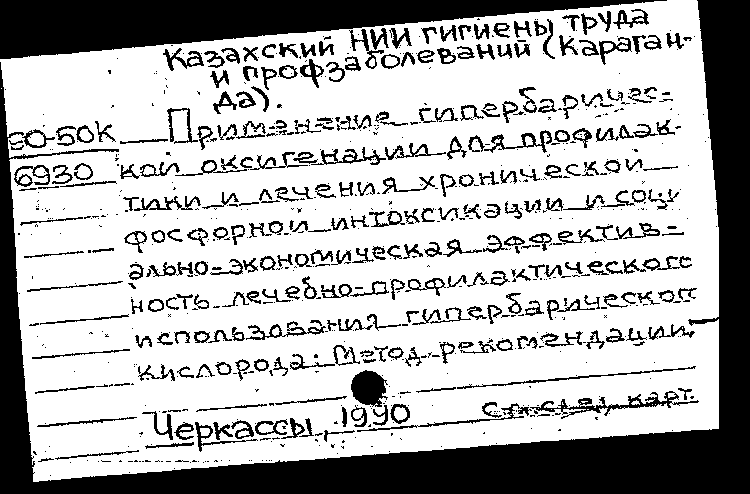 Казахский НИИ гигиены труда
и профзаболеваний (Караган-
да).
90-50К Применение гипербаричес-
6930 кой оксигенации для профилак-
тики и лечения хронической
фосфорной интоксикации и соци
ально-экономическая эффектив-
ность лечебно-профилактического
использования гипербарического
кислорода: Метод. рекомендации.
Черкассы, 1990
карт.